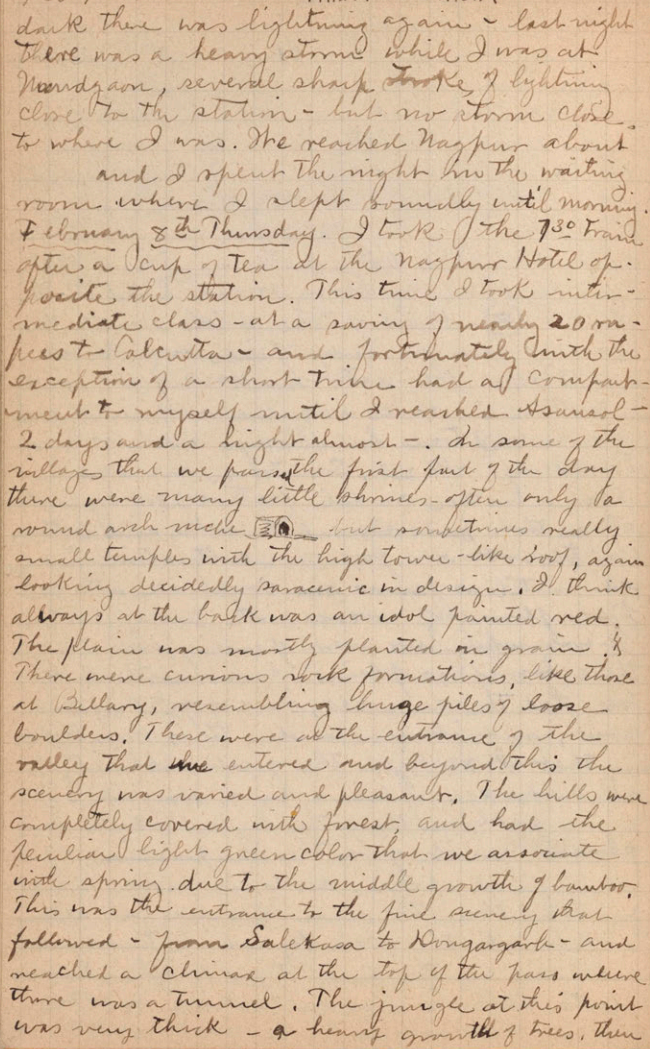 dark there was lightning again - last night
there was a heavy storm while I was at
Nandgaon, several sharp stroke of lightning
close to the station - but no storm close
to where I was. We reached Nagpur about
and I spent the night in the waiting
room where I slept soundly until morning.
February 8th Thursday. I took the 7 30 train
after a cup of tea at the Nagpur Hotel op-
posite the station. This time I took inter-
mediate class - at a saving of nearly 20 ru-
pees to Calcutta - and fortunately with the
exception of a short time had a compart-
ment to myself until I reached Asansol -
2 days and a night almost -. In some of the
villages that we passed the first part of the day
there were many little shrines - often only a
round arch niche - but sometimes really
small temples with the high tower-like roof, again
looking decidedly saracenic in design. I think
always at the back was an idol painted red.
The plain was mostly planted in grain. &
There were curious rock formations, like those
at Bellary, resembling huge piles of loose
boulders. These were at the entrance of the
valley that we entered and beyond this the
scenery was varied and pleasant. The hills were
completely covered with forest, and had the
peculiar light green color that we associate
with spring due to the middle growth of bamboo.
This was the entrance to the fine scenery that
followed - from Salekasa to Dongargarh - and
reached a climax at the top of the pass where
there was a tunnel. The jungle at this point
was very thick - a heavy growth of trees, then